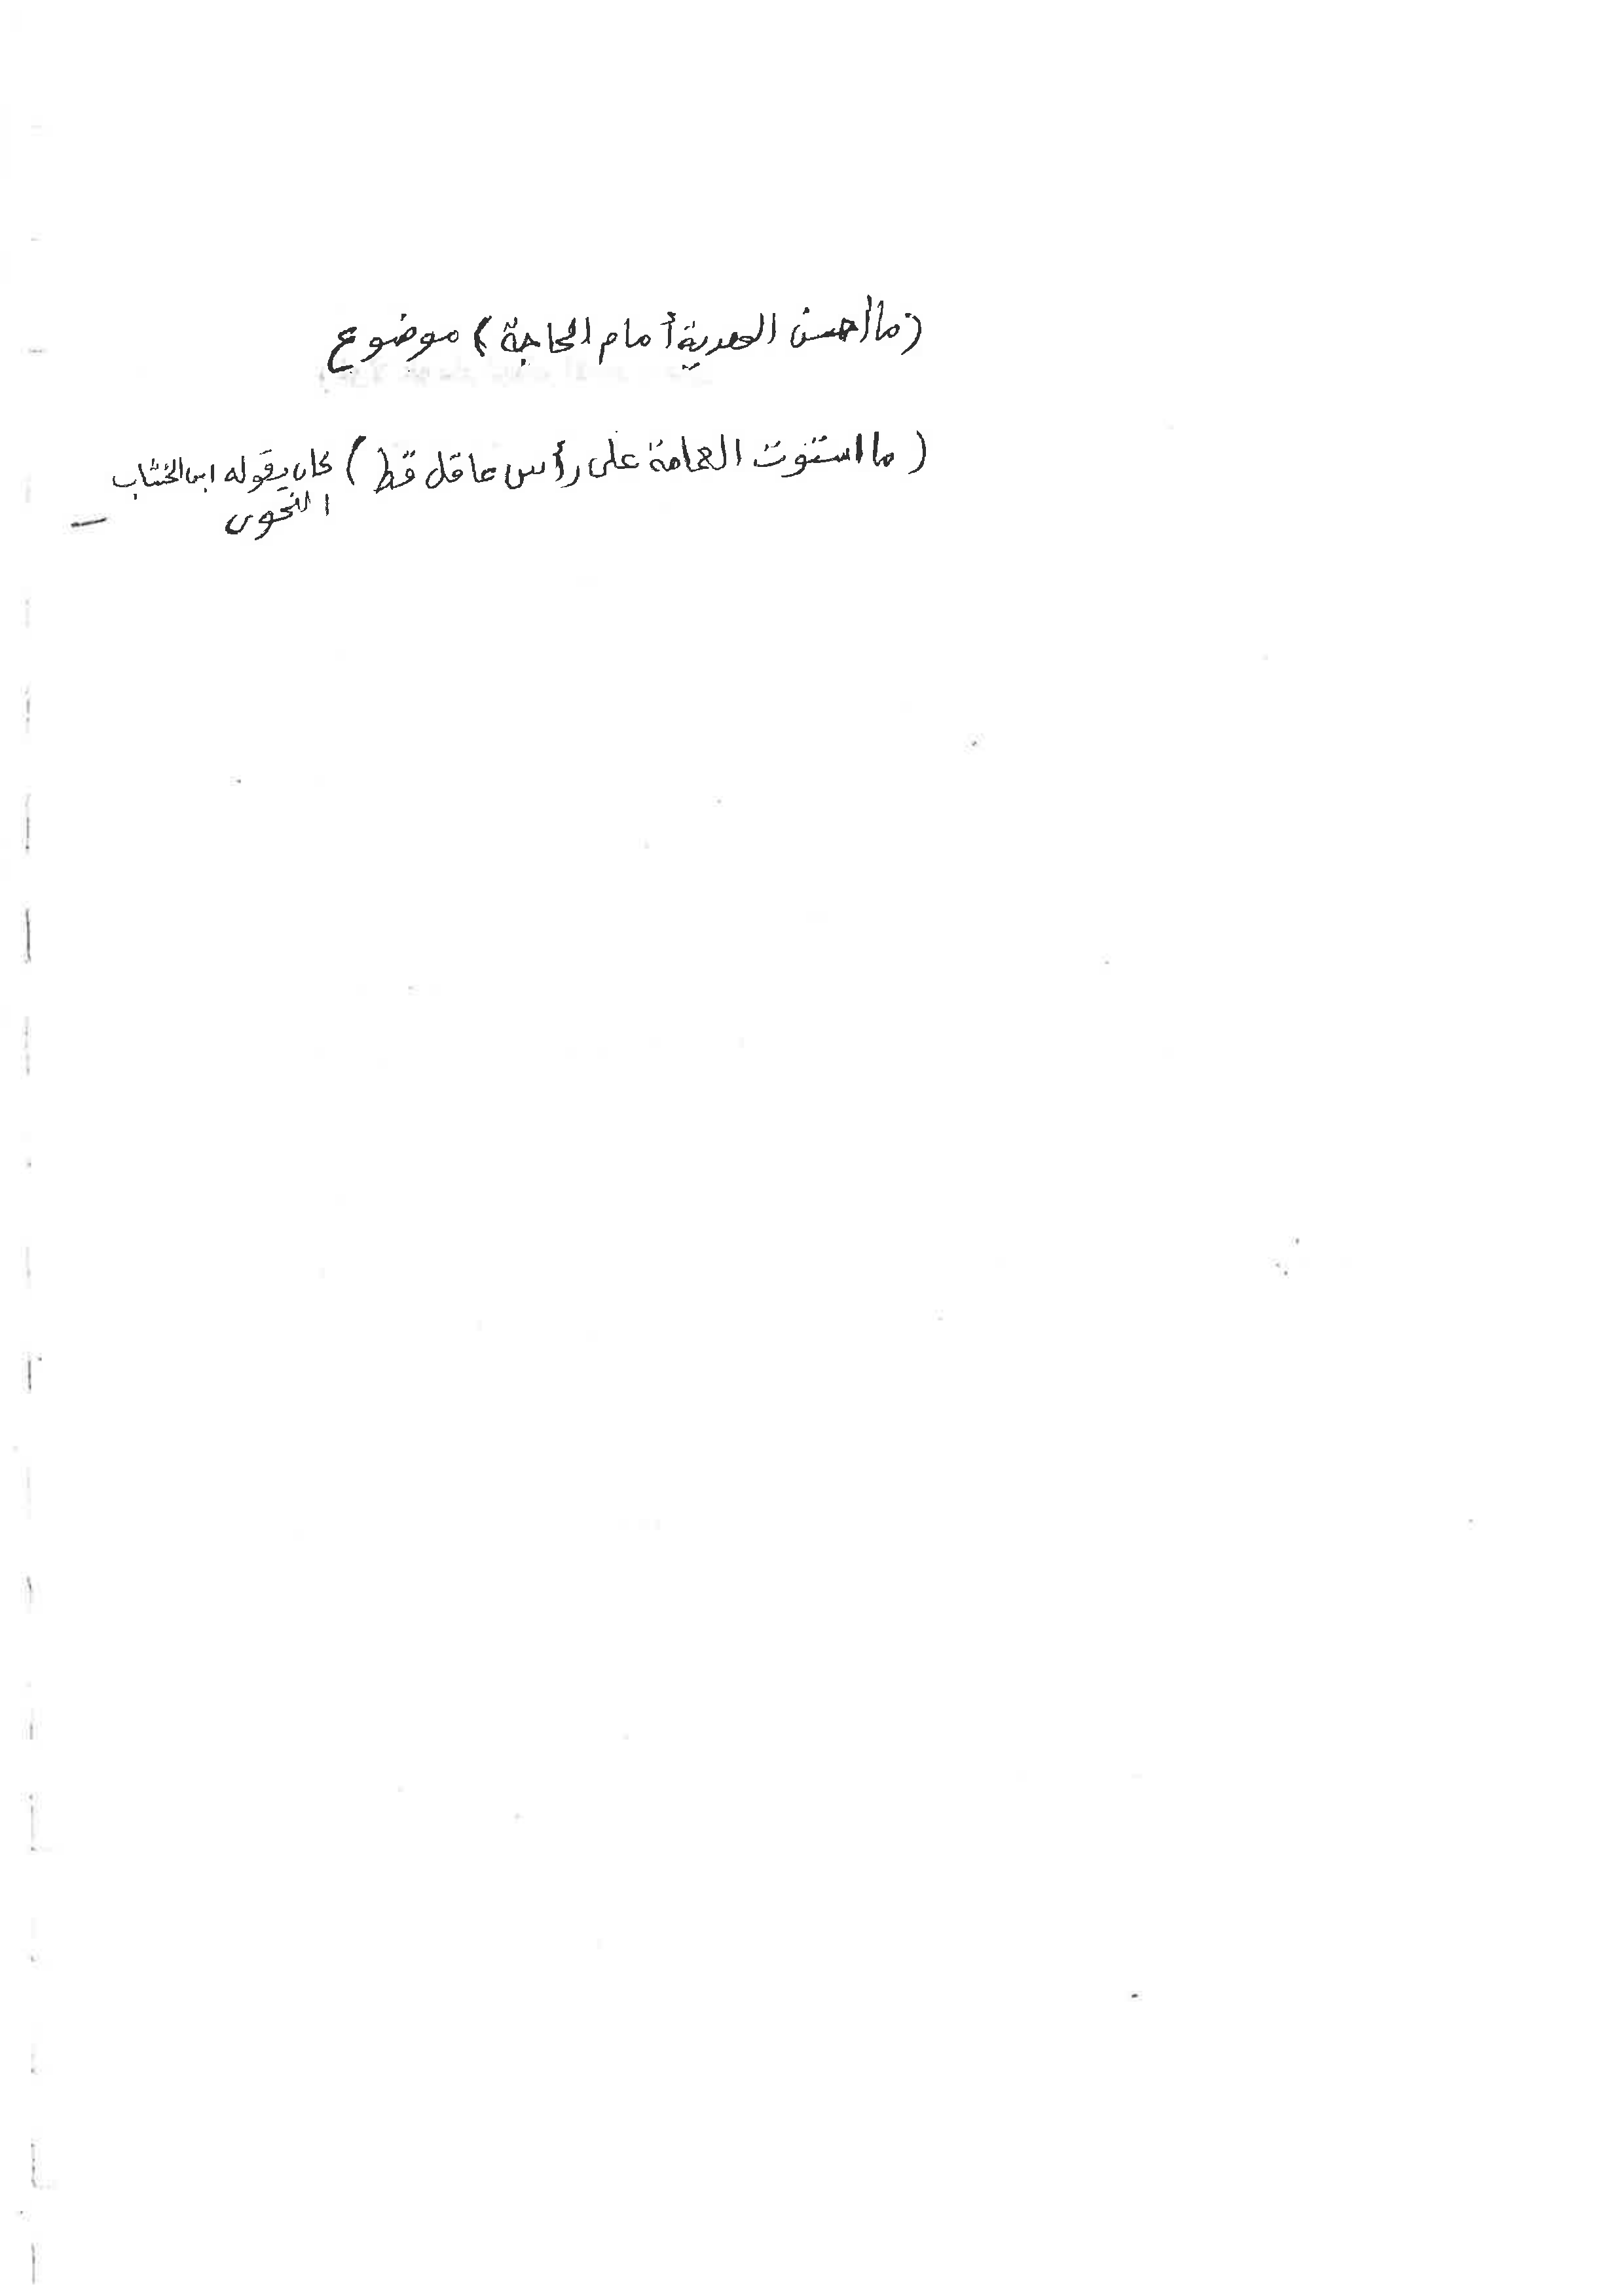 (ما أحسن الهدية أمام الحاجة) موضوع
(ما استوت العمامة على رأس عاقل قط) كان يقوله ابن الخشاب
النحوى